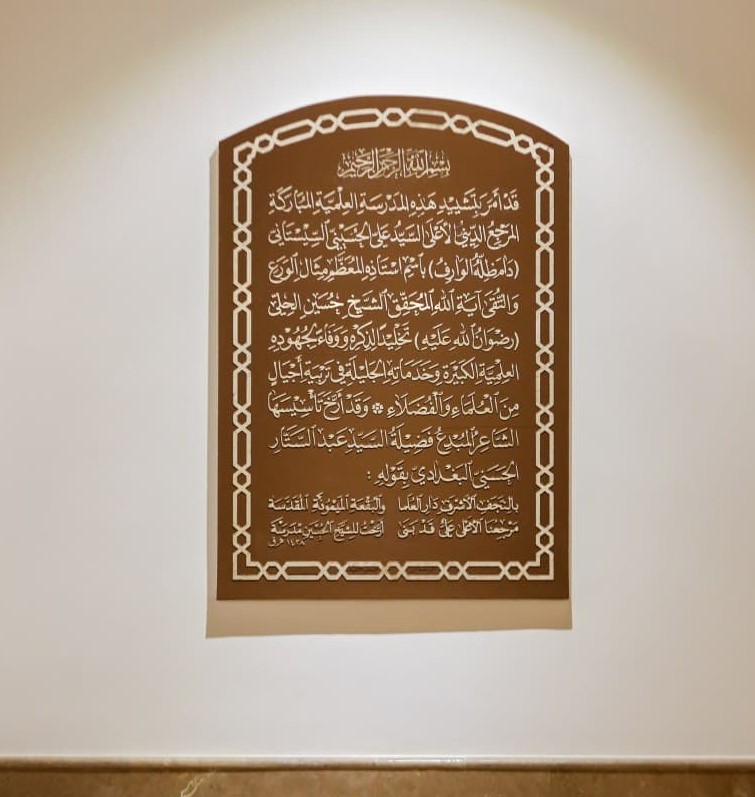 بسم الله الرحمن الرحيم
قد أمر بتشييد هذه المدرسة العلمية المباركة
المرجع الديني الأعلى السيد علي الحسيني السيستاني
(دام ظله الوارف) باسم استاذه المعظم مثال الورع
والتقى آية الله المحقق الشيخ حسين الحلي
(رضوان الله عليه) تخليدًا لذكره ووفاءً لجهوده
العلمية الكبيرة وخدماته الجليلة في تربية أجيال
من العلماء والفضلاء * وقد أرخ تأسيسها
الشاعر المبدع فضيلة السيد عبد الستار
الحسني البغدادي بقوله :
بالنجف الأشرف دار العلما والبقعة الميمونة المقدسة
مرجعنا الأعلى علي قد بنى أرخت للشيخ الحسين مدرسة
١٤٣٨ هـ ق